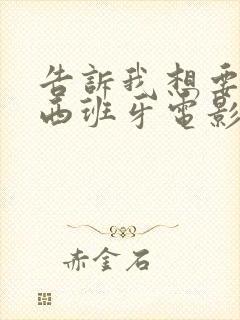 告訴我想要
西班牙電影
赤金石